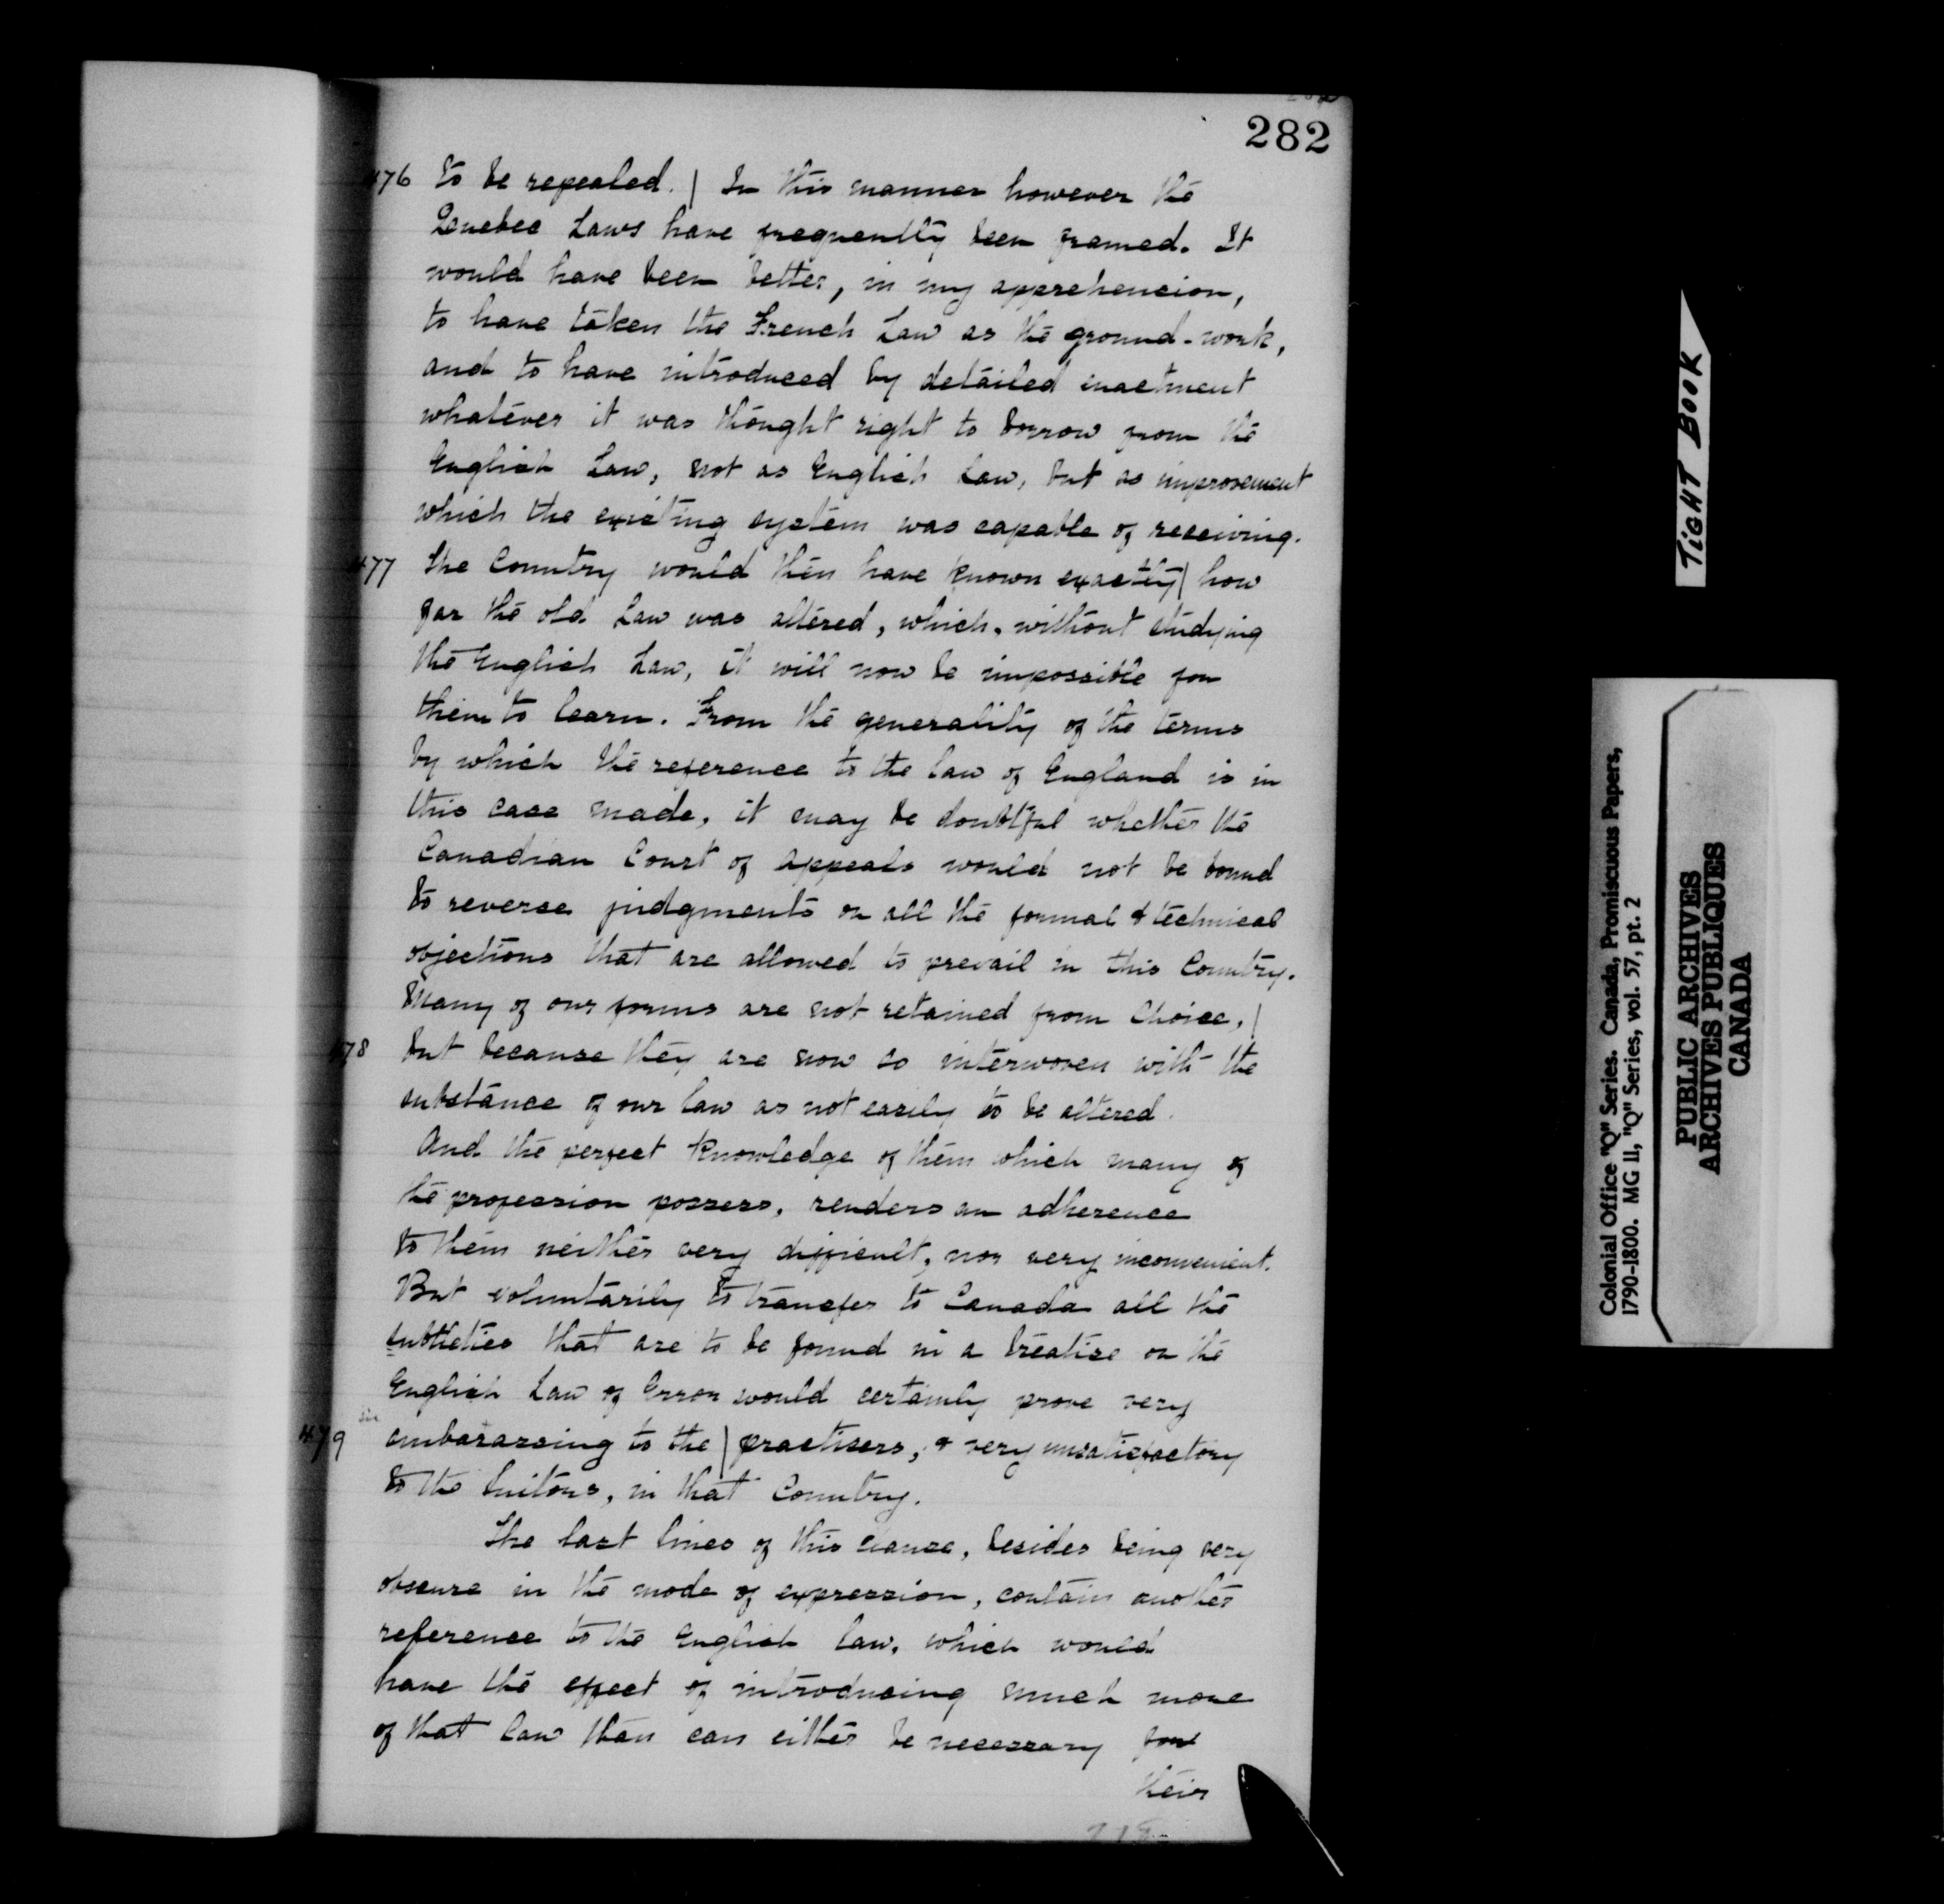 282
476 to be repealed. | In this manner however the
Quebec Laws have frequently been framed. It
would have been better, in my apprehension,
to have taken the French Law as the ground-work,
and to have introduced by detailed enactment
whatever it was thought right to borrow from the
English Law, not as English Law, but as improvement
which the existing system was capable of receiving.
477 The Country would then have known exactly | how
far the old Law was altered, which, without studying
the English Law, it will now be impossible for
them to learn. From the generality of the terms
by which the reference to the law of England is in
this case made, it may be doubtful whether the
Canadian Court of Appeals would not be bound
to reverse judgments on all the formal & technical
objections that are allowed to prevail in this Country.
Many of our forms are not retained from Choice, |
478 but because they are now so interwoven with the
substance of our law as not easily to be altered.
And the perfect knowledge of them which many of
the profession possess, renders an adherence
to them neither very difficult, nor very inconvenient.
But voluntarily to transfer to Canada all the
subtleties that are to be found in a treatise on the
English Law of Error would certainly prove very
sic
479 embarassing to the | practisers, & very unsatisfactory
to the Suitors, in that Country.
The last lines of this clause, besides being very
obscure in the mode of expression, contain another
reference to the English law, which would
have the effect of introducing much more
of that law than can either be necessary for
their
TIGHT BOOK
Colonial Office "Q" Series. Canada, Promiscuous Papers,
1790-1800. MG 11, "Q" Series, vol. 57, pt. 2
PUBLIC ARCHIVES
ARCHIVES PUBLIQUES
CANADA